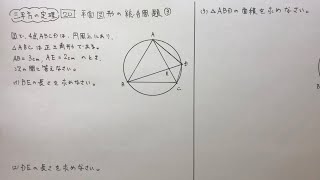 三平方の定理 20 平面図形の総合問題③
図で、4点ABCDは、円周上にあり、
△ABCは正三角形である。
AB=3cm、AE=2cmのとき、
次の問に答えなさい。
(1) BEの長さを求めなさい。
(2) DEの長さを求めなさい。
A
D
E
B
C
(3) △ABDの面積を求めなさい。